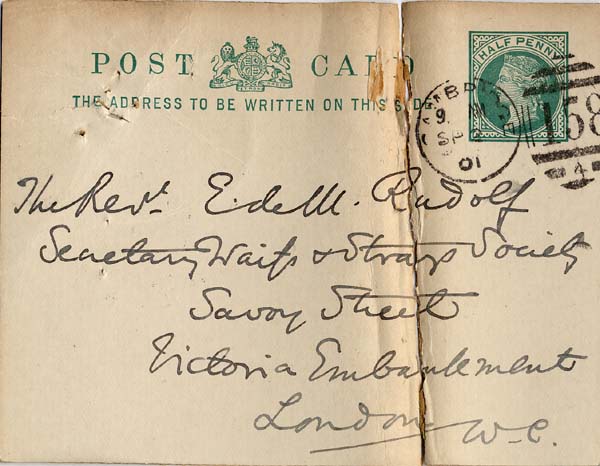 POST CARD
THE ADDRESS TO BE WRITTEN ON THIS SIDE
HALF PENNY
SP
01
158
4
The Revt. E. de M. Rudolf
Secretary Waifs & Strays Society
Savoy Street
Victoria Embankment
London W-C.